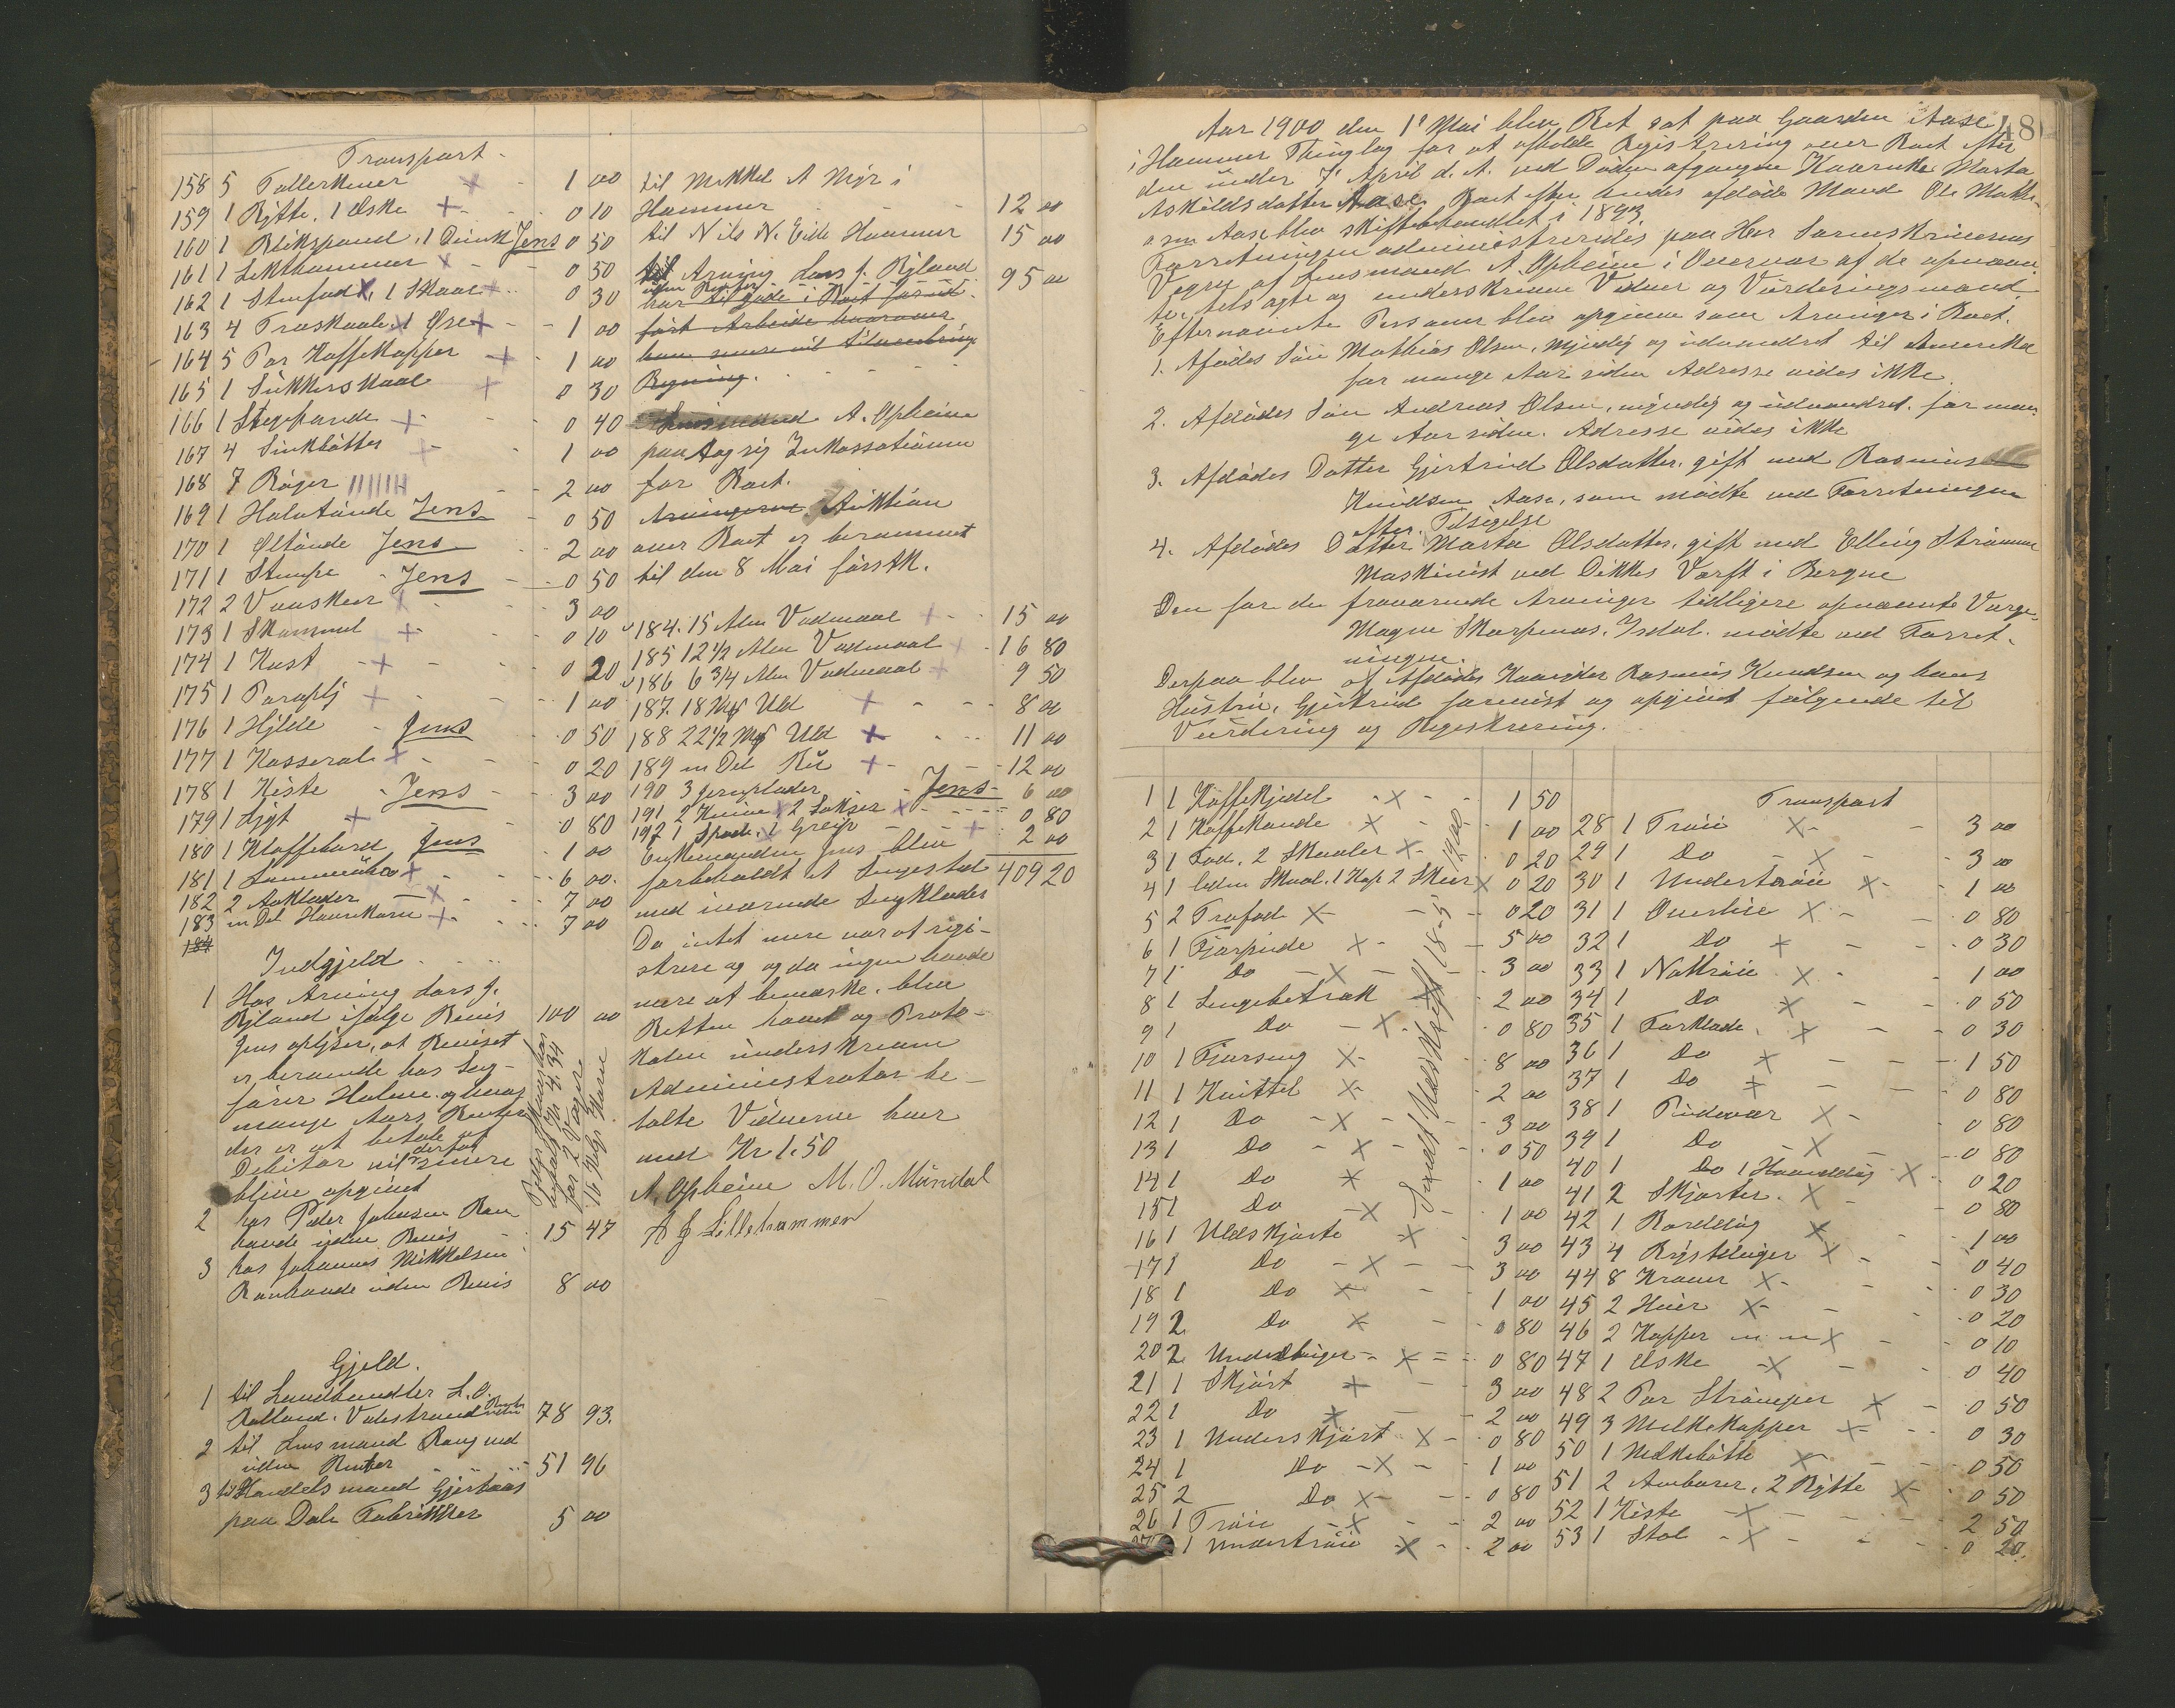 Transport
158 5 Tallerkener + 1 00
159 1 Bøtte, 1 Æske + 0 10
160 1 Blikspand, 1 Dunk Jens 0 50
161 1 Lekthammer x 0 50
162 1 Stenfad x, 1 Skaal + 0 30
163 4 Træskaale x 1 Øse + 1 00
164 5 Par Kaffekopper + 1 00
165 1 Sukkerskaal + 0 30
166 1 Stegepande + 0 40
167 4 Sinkbøtter + 1 00
168 7 Bøger 2 00
169 1 Halvtønde Jens 0 50
170 1 Øltønde Jens 2 00
171 1 Stampe Jens 0 50
172 2 Vandskeer + 3 00
173 1 Skammel + 0 10
174 1 Kost + 0 20
175 1 Paraply + 1 00
176 1 Hylde Jens 0 50
177 1 Kasserol + 0 20
178 1 Kiste Jens 3 00
179 1 Lygt + 0 80
180 1 Klaffebord Jens 1 00
181 1 Lommeuhr + 6 00
182 2 Aaklæder + 7 00
183 en Del Havrekorn + 7 00
184
Indgjeld
1 Hos Arving Lars J.
Røland ifølge Bevis 100 00
Jens oplyser, at Beviset
er beroende hos Sag-
fører Holme og hvor
mange Aars Renter
der er at betale af
Debitor vil derfor senere
blive opgivet
2 hos Peder Johnsen Ran
hovde uden Bevis 15 47
3 hos Johannes Mikkelsen
Ranhovde uden Bevis 8 00
Gjeld.
1 til Landhandler L. O.
Rolland, Valestrand uden Renter 78 93
2 til Lensmand Haugned
uden Renter 51 96
3 til Handelsmand Gjertsaas
paa Dale Fabrikker 5 00
til Mikkel A Myr i
Hammer 12 00
til Nils N. Eide Hammer 15 00
til Arving Lars J. Røland
uden Renter 95 00
har til gode i Boet for ud-
ført Arbeide hvorover
han senere vil tilvejebringe
Regning.
Lensmand A. Opheim
paatog sig Inkassationen
for Boet.
Arvingerne Auktion
over Boet er berammet
til den 8 Mai førstk.
184. 15 Alen Vadmaal + 15 00
185 12 1/2 Alen Vadmaal + 16 80
186 6 3/4 Alen Vadmaal + 9 50
187. 18 Mk Uld + 8 00
188 22 1/2 Mk Uld + 11 00
189 en Del Ru + 12 00
190 3 Jernplader Jens 6 00
191 2 Knive x 2 Sakser x 0 80
192 1 Spade, 1 Greip + 2 00
Enkemanden Jens blev 409 20
forbeholdt et Sengested
med iværende Sengklæder
Da intet mere var at regi-
strere og da ingen havde
mere at bemærke, blev
Retten hævet og Proto-
kolen underskreven
Administrator be-
talte Vidnerne hver
med Kr 1.50
A. Opheim M. O. Mundal
A J Lillehammer
Aar 1900 den 1e Mai blev Ret sat paa Gaarden Aase
i Hammer Thinglag for at afholde Registrering over Boet efter
den under 7e April d. A. ved Døden afgangne Kaarenke Marta
Askildsdatter Aase. Boet efter hendes afdøde Mand Ole Mathi-
asen Aase blev skiftebehandlet i 1893.
Forretningen administreredes paa Hr Sorenskriverens
Vegne af Lensmand A. Opheim i Overvær af de opnævn-
te, tilsagte og underskrevne Vidner og Vurderingsmænd.
Efternævnte Personer blev opgivne som Arvinger i Boet.
1. Afdødes Søn Mathias Olsen, myndig og udvandret til Amerika
for mange Aar siden Adresse vides ikke.
2. Afdødes Søn Andreas Olsen, myndig og udvandret for man-
ge Aar siden. Adresse vides ikke
3. Afdødes Datter Gjertrud Olsdatter, gift med Rasmus
Knudsen Aase, som mødte ved Forretningen
efter Tilsigelse
4. Afdødes Datter Marta Olsdatter, gift med Elling Strømme
Maskinist ved Dekkes Værft i Bergen
Den for de fraværende Arvinger tidligere opnævnte Værge
Magne Skarpenæs, Isdal. mødte ved Forret-
ningen.
Derpaa blev af Afdødes Kaaryder Rasmus Knudsen og hans
Hustru, Gjertrud forevist og opgivet følgende til
Vurdering og Registrering.
1 1 Kaffekjedel x 1 50
2 1 Kaffekande x 1 00
3 1 Fad, 2 Skaaler x 0 20
4 1 liden Skaal, 1 Kop 2 Skeer x 0 20
5 2 Træfade x 0 20
6 1 Fjærpude x 5 00
7 1 Do x 3 00
8 1 Sengebetræk x 2 00
9 1 Do x 0 80
10 1 Fjærseng x 8 00
11 1 Knittel x 2 00
12 1 Do x 3 00
13 1 Do x 0 50
14 1 Do x 1 00
15 1 Do x 1 00
16 1 Uldskjorte x 3 00
17 1 Do x 3 00
18 1 Do x 1 00
19 2 Do x 0 80
20 2 Underbuxer x 0 80
21 1 Skjørt x 3 00
22 1 Do x 2 00
23 1 Underskjørt x 0 80
24 1 Do x 1 00
25 2 Do x 0 80
26 1 Trøie x 2 00
27 1 Undertrøie x 2 00
Sendt Udskrift 18-5 1900
Transport
28 1 Trøie x 3 00
29 1 Do x 3 00
30 1 Undertrøie x 1 00
31 1 Overlise x 0 80
32 1 Do x 0 30
33 1 Nattrøie x 1 00
34 1 Do x 0 50
35 1 Forklæde x 0 30
36 1 Do x 1 50
37 1 Do x 0 80
38 1 Pudevar x 0 80
39 1 Do x 0 80
40 1 Do 1 Haanddug x 0 20
41 2 Skjorter x 0 80
42 1 Borddug x 1 00
43 4 Brystduger x 0 40
44 8 Kraver x 0 30
45 2 Huer x 0 20
46 2 Kopper m m x 0 10
47 1 Æske x 0 40
48 2 Par Strømper x 0 50
49 3 Melkekopper x 0 30
50 1 Melkebøtte x 0 50
51 2 Ambarer, 2 Bøtte x 0 50
52 1 Kiste x 2 50
53 1 Stol x 0 20